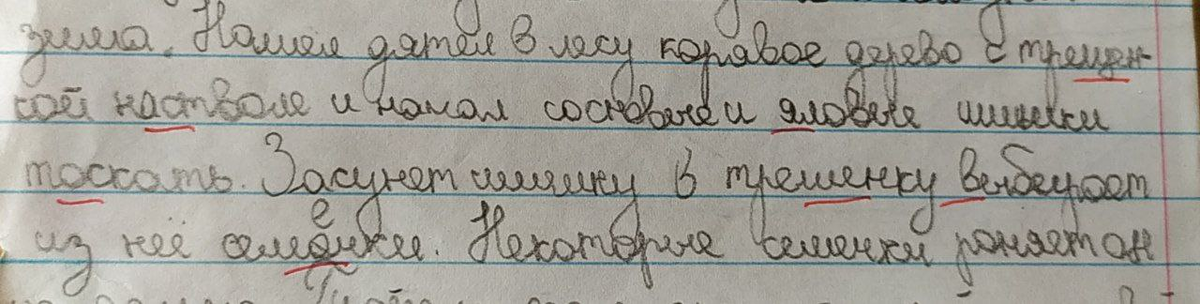 зима. Нашел дятел в лесу корявое дерево с трещен-
кой настволе и начал сосновые и яловые шишки
тоскать. Засунет шишку в трешенку выбеурает
из неё семёнки. Некоторые семенки роняет он